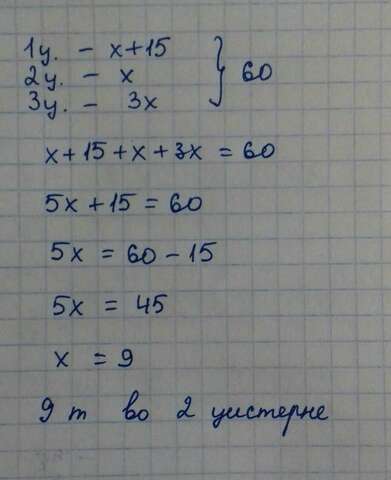 1ц. - x+15
2ц. - x } 60
3ц. - 3x
x+15+x+3x = 60
5x+15 = 60
5x = 60-15
5x = 45
x = 9
9 т во 2 цистерне